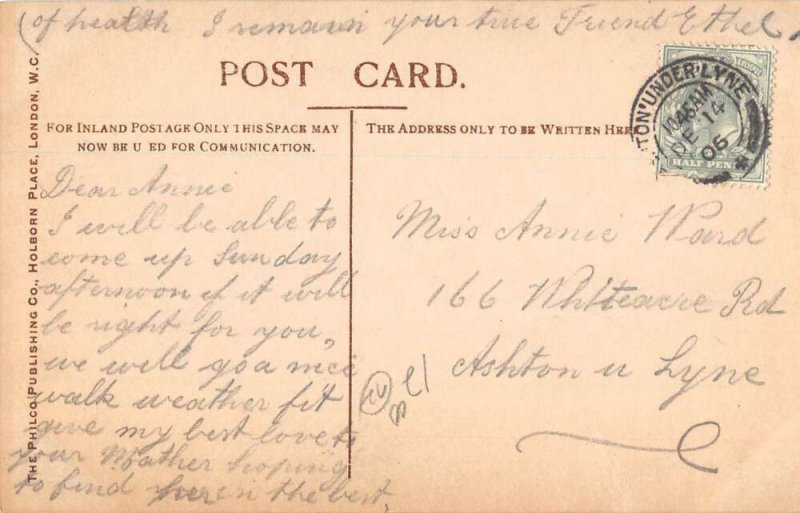 (of health I remain your true Friend Ethel
POST CARD.
FOR INLAND POSTAGE ONLY THIS SPACE MAY
NOW BE U ED FOR COMMUNICATION.
THE ADDRESS ONLY TO BE WRITTEN HERE
TON UNDER LYNE
1045AM
DE 14
06
HALF PEN
THE PHILCO PUBLISHING CO., HOLBORN PLACE, LONDON, W.C.
Dear Annie
I will be able to
come up Sunday
afternoon if it will
be right for you,,
we will go a nice
walk weather fit
give my best love to
your Mother hoping
to find her in the best.
Miss Annie Ward
166 Whiteacre Rd
Ashton u Lyne